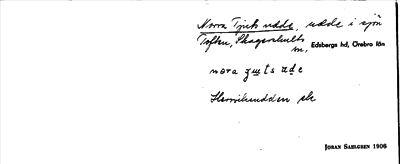 Norra Tjuts udde, udde i sjön
Toften, Skagershults
sn, Edsbergs hd, Örebro län
nora
Herrviksudden ek
JÖRAN SAHLGREN 1906